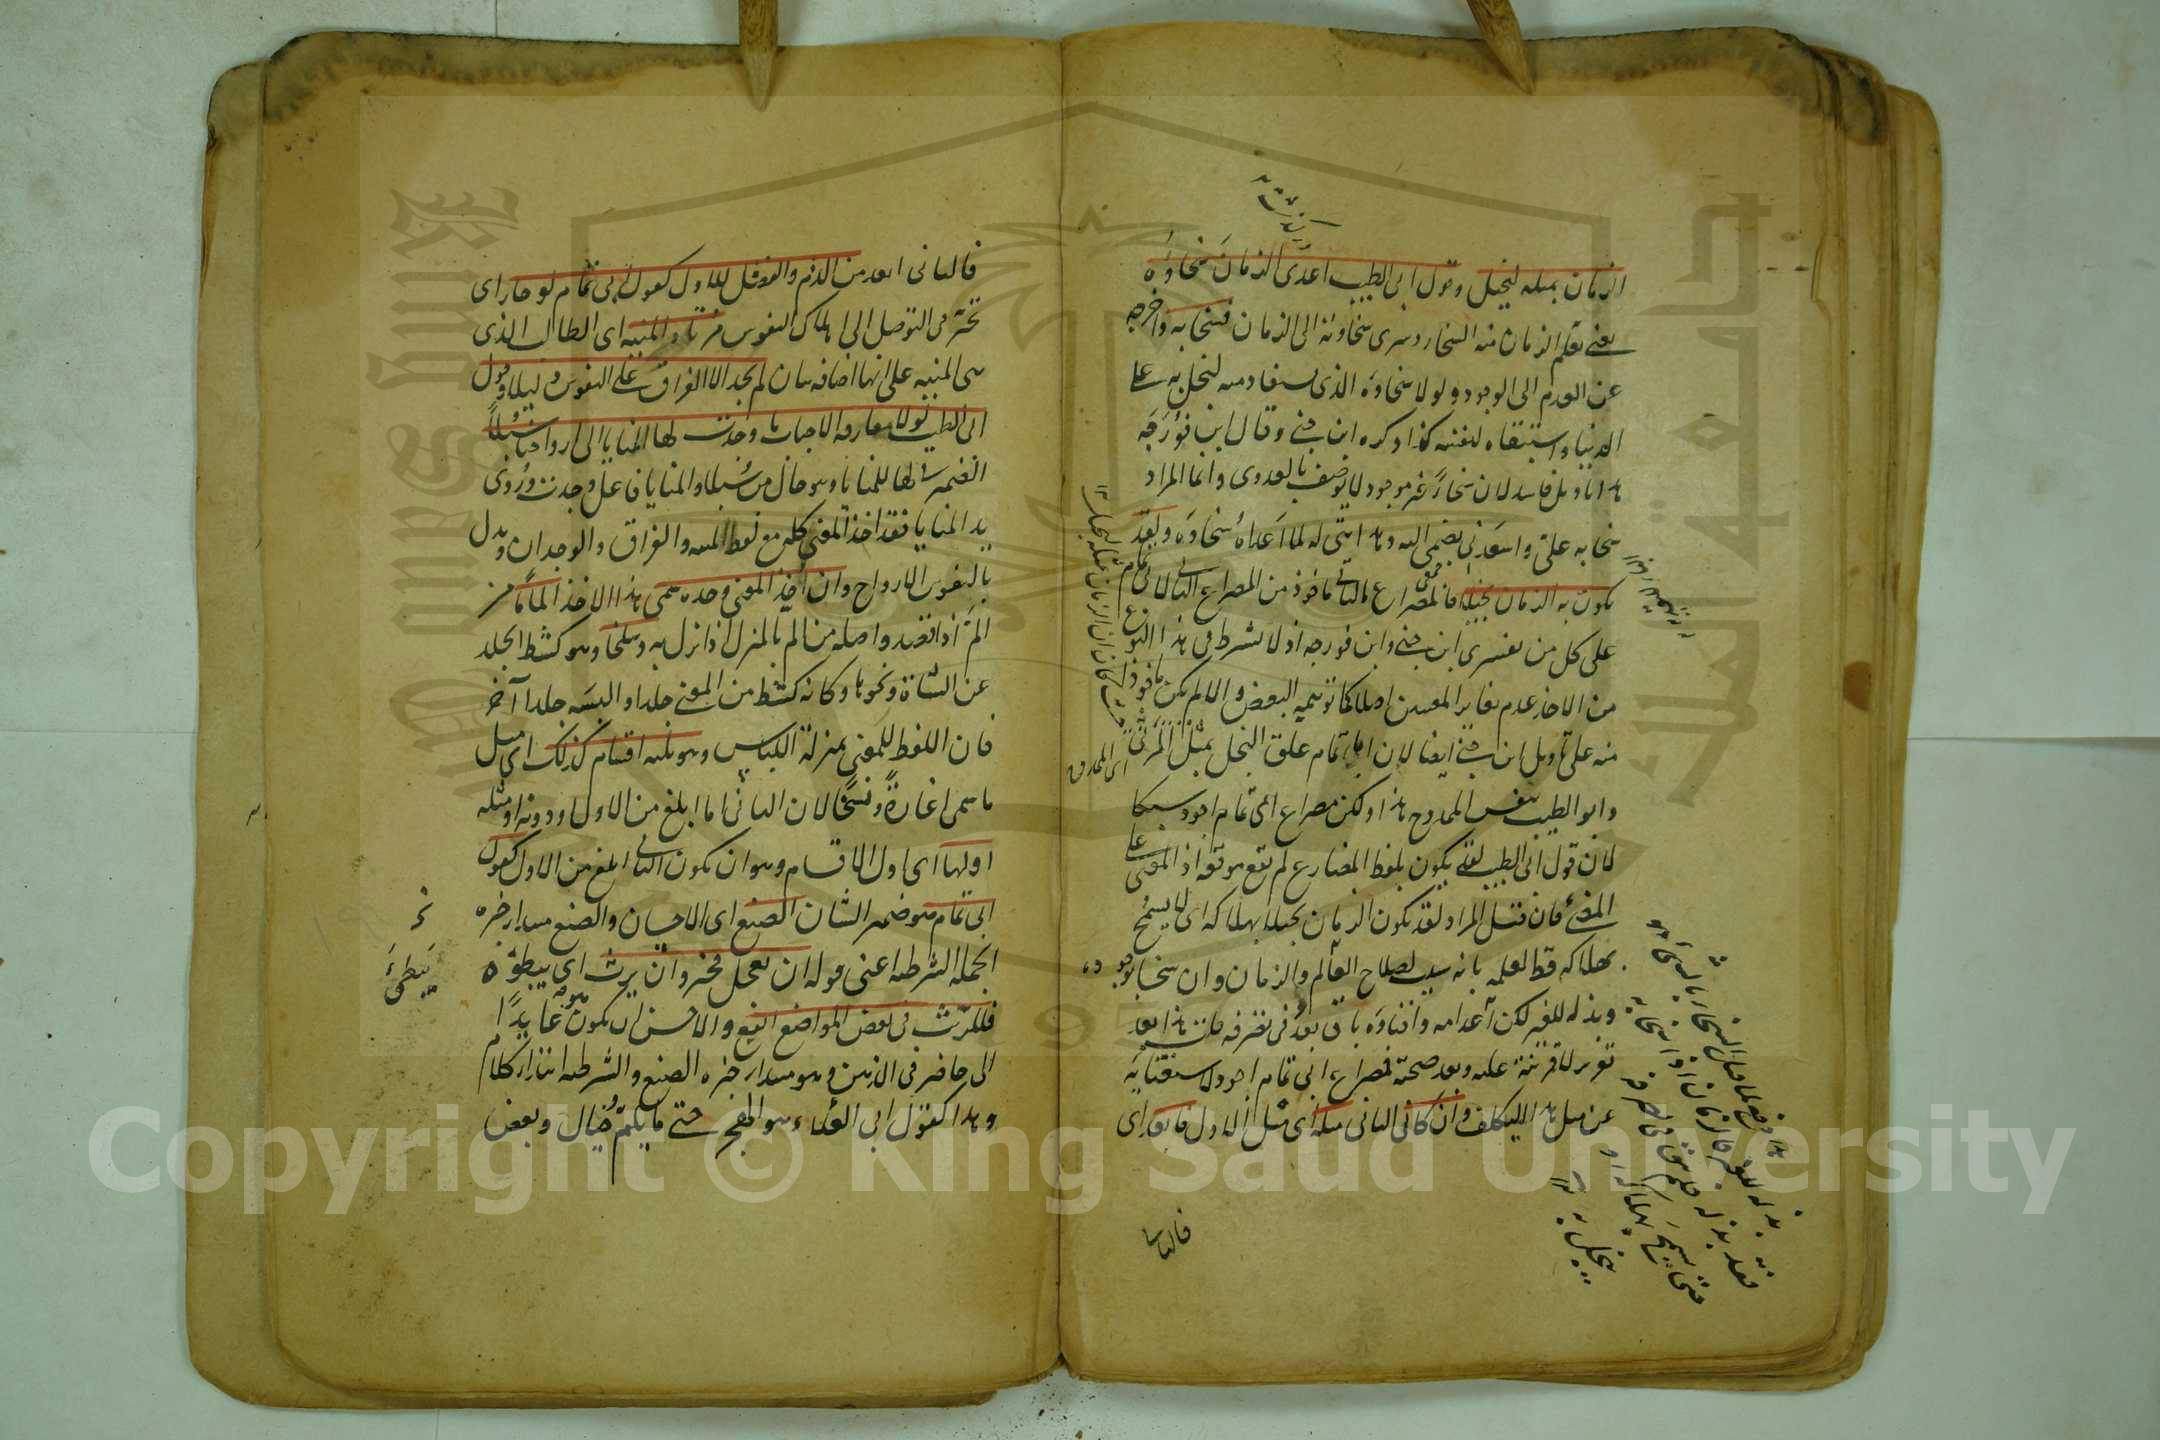 الزمان بمثله لبخيل وقول ابى الطيب اعدى الزمان سخاؤه
يعنى تعلم الزمان منه السخاء وسرى سخاوته الى الزمان فسخا به واخرجه
عن العدم الى الوجود ولولا سخاوه الذى استفاد منه لبخل به على
الدنيا واستبقاه لنفسه كذا ذكره ابن جنى وقال ابن فورجه
هذا تاويل فاسد لان سخاء غير موجود لا يوصف بالعدوى وانما المراد
سخا به على واسعدنى بضمى اليه وهدايتى له لما اعداه سخاوه ولقد
يكون به الزمان بخيلا فالمصراع الثانى ماخوذ من المصراع الثانى لابى تمام
على كل من تفسيرى ابن جنى وابن فورجه اذ لا يشترط فى هذا النوع
من الاخذ عدم تغاير المعنيين اصلا كما توهمه البعض والا لم يكن ماخوذا
منه على تاويل ابن جنى ايضا لان ابا تمام علق البخل بمثل المرثى
وابو الطيب بنفس الممدوح هذا ولكن مصراع ابى تمام اجود سبكا
لان قول ابى الطيب لقد يكون بلفظ المضارع لم يقع موقعه اذ المعنى على
المضى فان قيل المراد لقد يكون الزمان بخيلا بهلاكه اى لا يسمح
بهلاكه قط لعلمه بانه سبب لصلاح العالم والزمان وان سخا بوجوده
وبذله للغير لكن اعدامه وافناوه باق بعد فى تصرفه قلت هذا بعد
تقدير لا قرينة عليه وبعد صحته فمصراع ابى تمام اجود لاستغنائه
عن مثل هذا التكلف وان كان الثانى مثله اى مثل الاول فابعد اى
فالثانى
فالثانى ابعد من الذم والفضل للاول كقول ابى تمام لو حار اى
تحير فى التوصل الى اهلاك النفوس مرتاد المنيه اى الطالب الذى
هى المنيه على انها اضافه بيان لم يجد الا الفراق على النفوس دليلا وقول
ابى الطيب لولا مفارقه الاحباب ما وجدت لها المنايا الى ارواحنا سبلا
الضمير فى لها للمنايا وهو حال من سبلا والمنايا فاعل وجدت وروى
يد المنايا فقد اخذ المعنى كله مع لفظ المنيه والفراق والوجدان وبدل
بالنفوس الارواح وان اخذ المعنى وحده سمى هذا الاخذ الماما من
الم اذا قصد واصله من الم بالمنزل اذا نزل به وسلخا وهو كشط الجلد
عن الشاة ونحوها وكانه كشط من المعنى جلدا والبسه جلدا آخر
فان اللفظ للمعنى بمنزلة اللباس وهو ثلثه اقسام كذلك اى مثل
ما سمى اغارة ونسخا لان الثانى اما ابلغ من الاول او دونه او مثله
اولها اى اول الاقسام وهو ان يكون الثانى ابلغ من الاول كقول
ابى تمام هو ضمير الشان الصنع اى الاحسان والصنع مبتدا خبره
الجمله الشرطيه اعنى قوله ان يعجل فخير وان يرث اى يبطؤ
فللريث فى بعض المواضع انفع والاحسن ان يكون هو عايدا
الى حاضر فى الذهن وهو مبتدا خبره الصنع والشرطيه ابتداء كلام
وهذا كقول ابى العلاء هو الهجر حتى ما يلم خيال وبعض